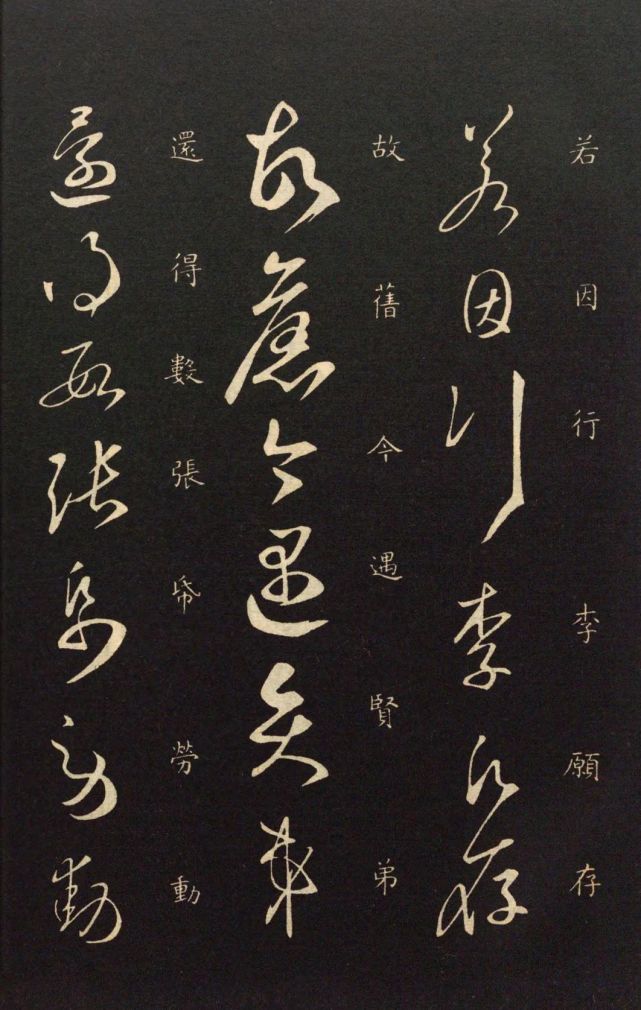 若因行李願存
若因行李願存
故舊今遇賢弟
故舊今遇賢弟
還得數張帋勞動
還得數張帋勞動